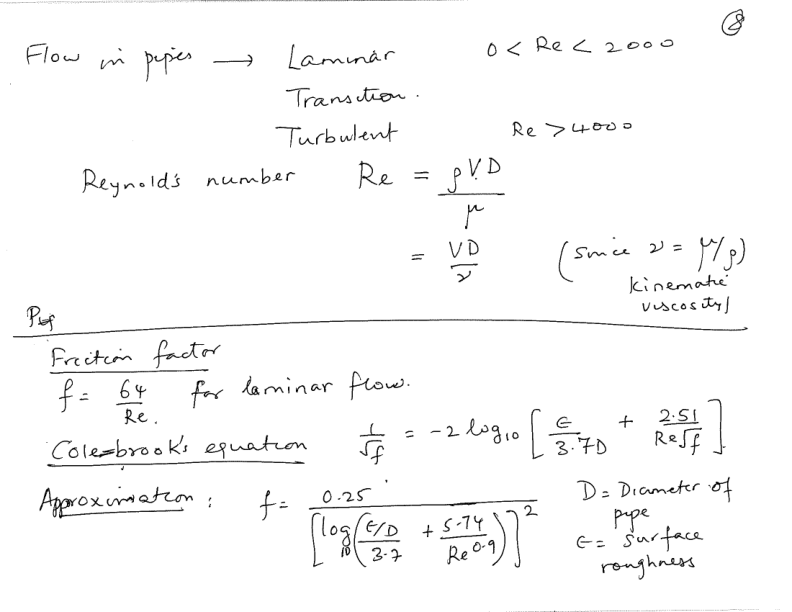 8
Flow in pipes → Laminar 0 < Re < 2000
Transition.
Turbulent Re > 4000
Reynold's number Re = ρVD / μ
= VD / ν (since ν = μ/ρ)
kinematic
viscosity)
Friction factor
f = 64 / Re. for laminar flow.
Colebrook's equation 1/√f = -2 log10 [ ϵ / 3.7D + 2.51 / Re√f ].
Approximation : f = 0.25 / [ log10 ( ϵ/D / 3.7 + 5.74 / Re^0.9 ) ]^2
D = Diameter of
pipe
ϵ = surface
roughness